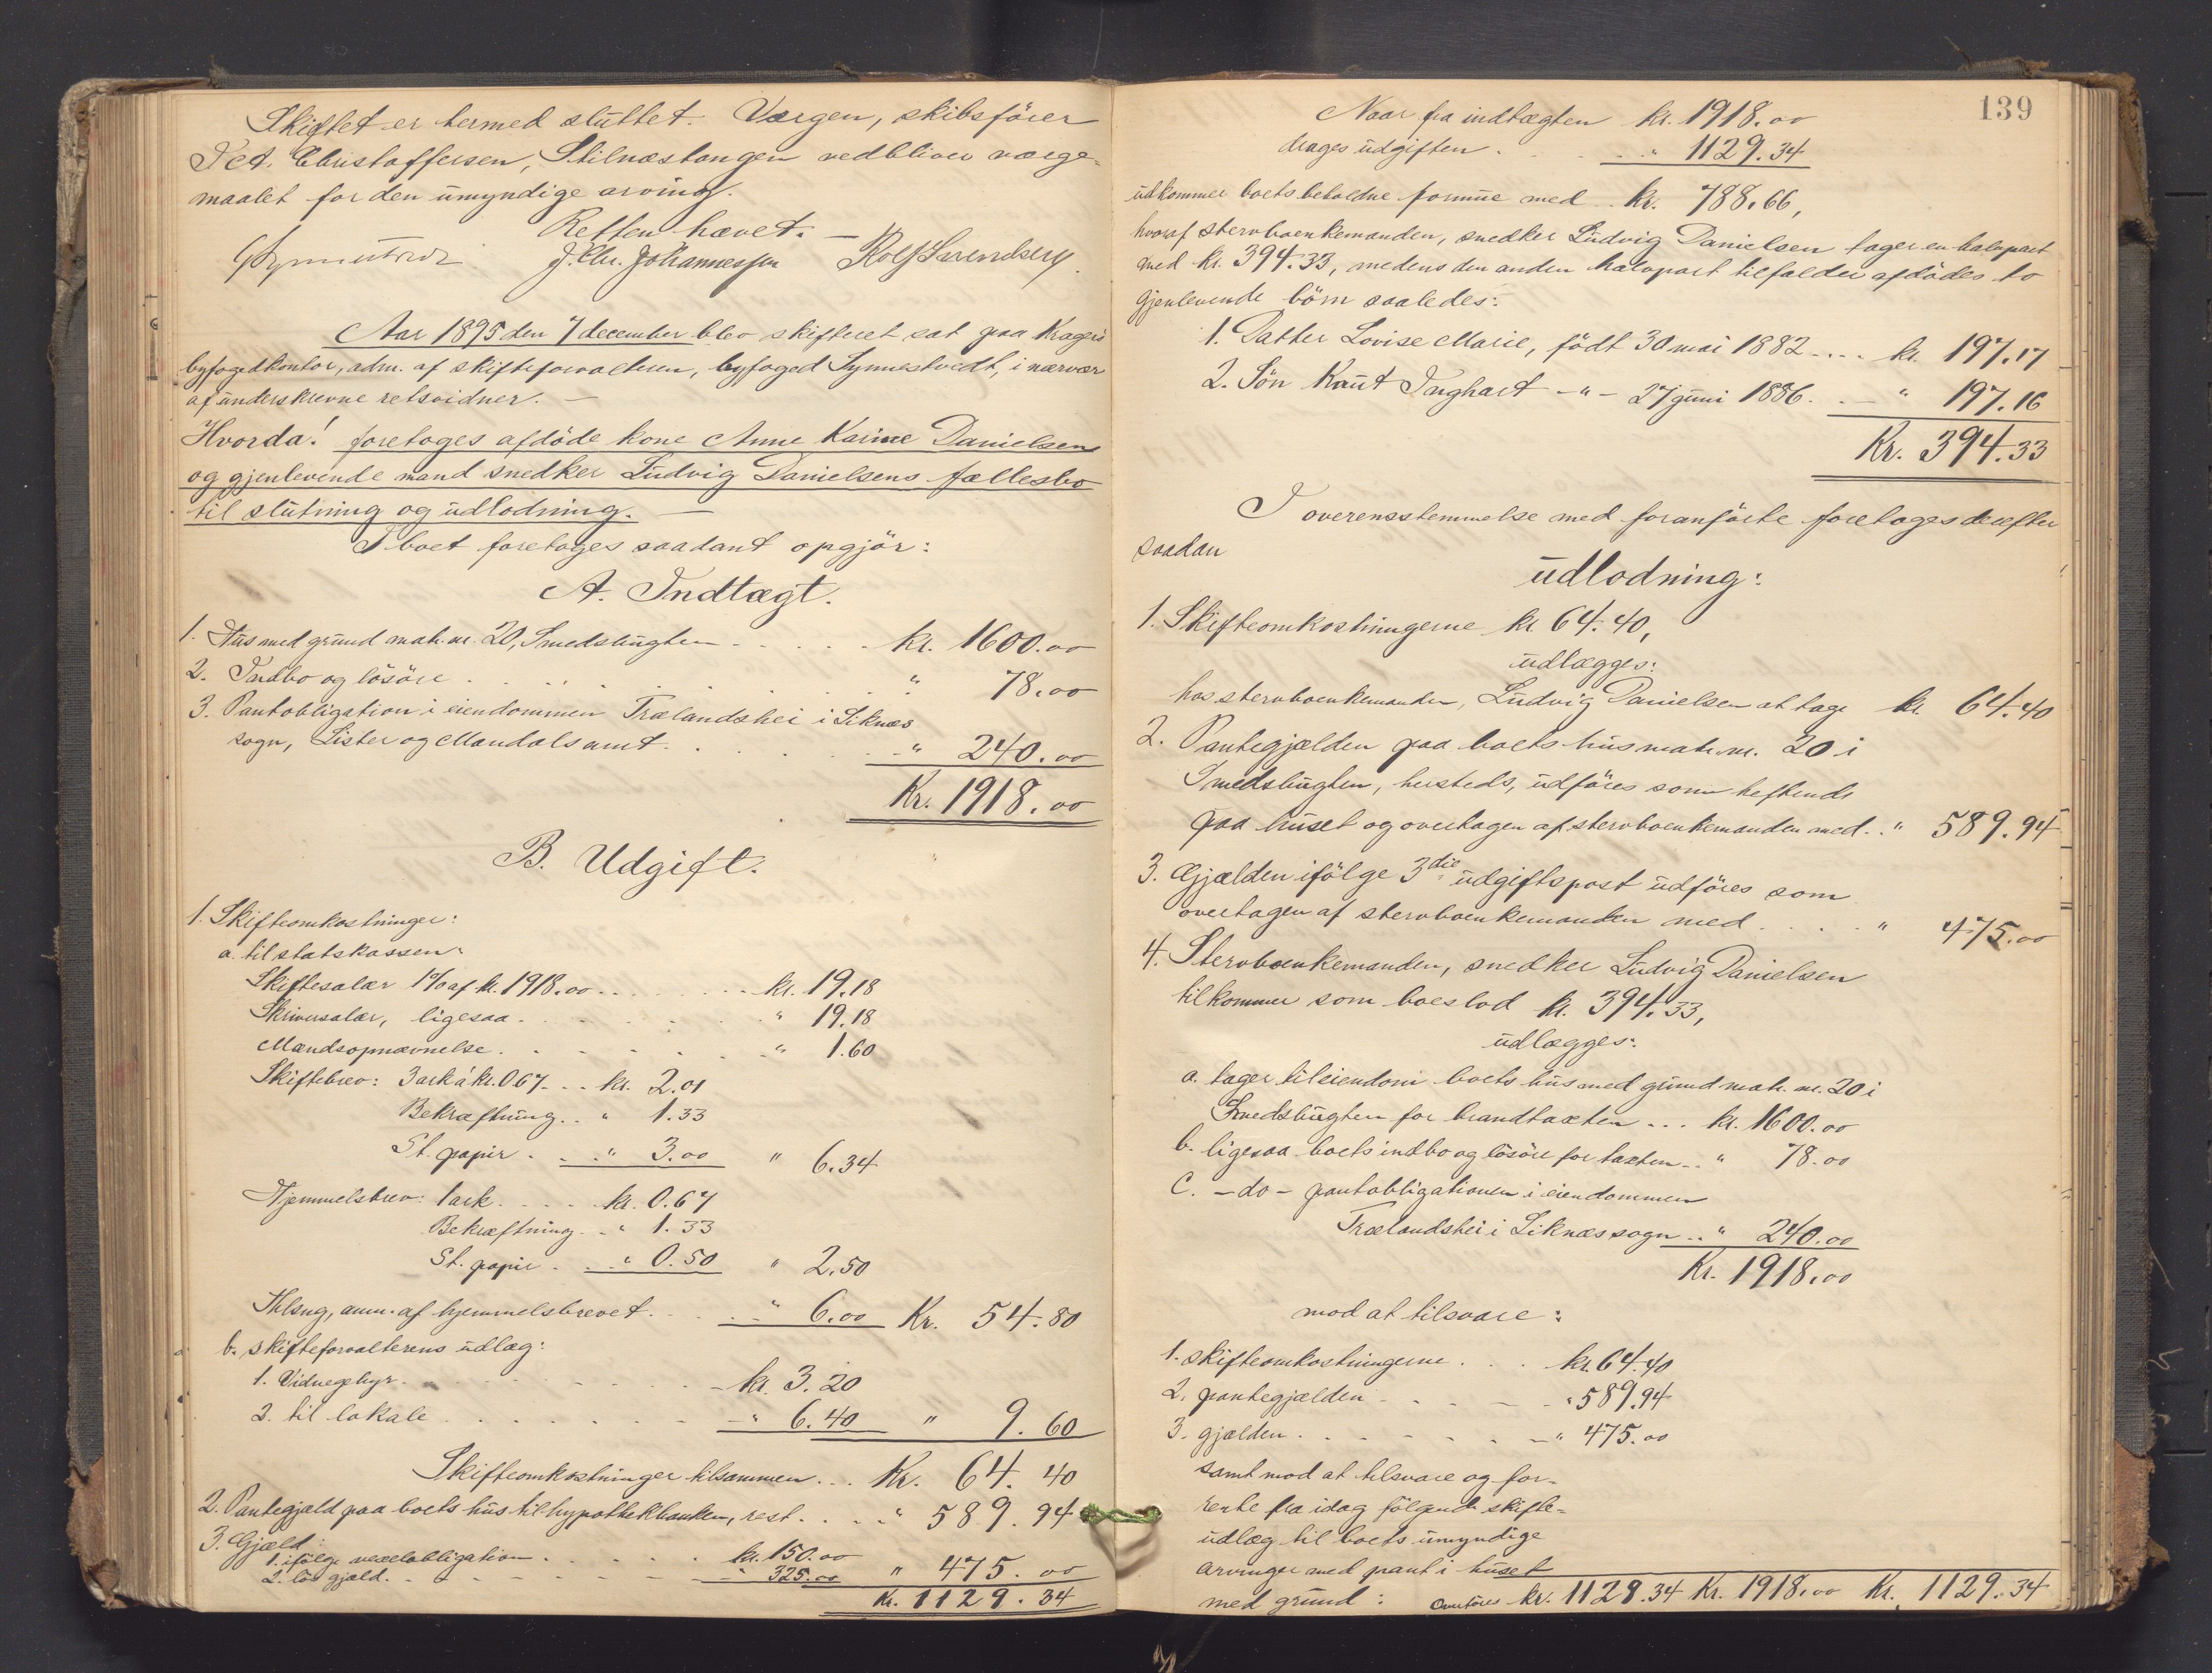 Skiftet er hermed sluttet. Værgen, skibsfører
Ped. Christoffersen, Stilnæstangen vedbliver værge-
maalet for den umyndige arving.
Retten hævet. —
J. Chr. Johannessen
Aar 1895 den 7 december blev skifteret sat paa Kragerø
byfogedkontor, adm. af skifteforvalteren, byfoged Synnestvedt, i nærvær
af underskrevne retsvidner. —
Hvorda! foretoges afdøde kone Anne Karine Danielsens
og gjenlevende mand snedker Ludvig Danielsens fællesbo
til slutning og udlodning. —
I boet foretoges saadant opgjör:
A. Indtægt.
1. Hus med grund matr. nr. 20, Smedsbugten . . . . kr. 1600.00
2. Indbo og lösöre . . . . " 78.00
3. Pantobligation i eiendommen Trælandshei i Liknæs
sogn, Lister og Mandals amt. . . . " 240.00
Kr. 1918.00
B. Udgift.
1. Skifteomkostninger:
a. til statskassen:
Skiftesalær 1% af kr. 1918.00 . . . . kr. 19.18
Skriversalær, ligesaa . . . . " 19.18
Mandsopnævnelse . . . . " 1.60
Skiftebrev: 3 ark á kr. 0.67 . . . kr. 2.01
Bekræftning . . " 1.33
St. papir . . . " 3.00 " 6.34
Hjemmelsbrev: 1 ark . . . . kr. 0.67
Bekræftning . . " 1.33
St. papir . . . " 0.50 " 2.50
Thlsng, anm. af hjemmelsbrevet . . . " 6.00 Kr. 54.80
b. skifteforvalterens udlæg:
1. Vidnegebyr . . . . kr. 3.20
2. til lokale . . . . " 6.40 " 9.60
Skifteomkostninger tilsammen . . . Kr. 64.40
2. Pantegjæld paa boets hus til hypothekbanken, rest . . . . " 589.94
3. Gjæld
1. ifølge vexelobligation . . . . kr. 150.00
2. lös gjæld . . . . " 325.00 " 475.00
Kr. 1129.34
139
Naar fra indtægten kr. 1918.00
drages udgiften . . . " 1129.34
udkommer boets beholdne formue med . . kr. 788.66,
hvoraf stervboenkemanden, snedker Ludvig Danielsen tager en halvpart
med kr. 394.33, medens den anden halvpart tilfalder afdødes to
gjenlevende börn saaledes:
1. Datter Lovise Marie, födt 30 mai 1882 . . . . kr. 197.17
2. Sön Knut Inghart — " — 27 juni 1886 . . — " 197.16
Kr. 394.33
I overensstemmelse med foranförte foretoges derefter
saadan
udlodning:
1. Skifteomkostningerne kr. 64.40,
udlægges:
hos stervboenkemanden, Ludvig Danielsen at tage kr. 64.40
2. Pantegjælden paa boets hus matr. nr. 20 i
Smedsbugten, hersteds, udföres som heftende
paa huset og overtagen af stervboenkemanden med . . " 589.94
3. Gjælden ifölge 3die udgiftspost udföres som
overtagen af stervboenkemanden med . . . . " 475.00
4. Stervboenkemanden, snedker Ludvig Danielsen
tilkommer som boeslod kr. 394.33,
udlægges:
a. tager til eiendom boets hus med grund matr. nr. 20 i
Smedsbugten for brandtaxten . . . kr. 1600.00
b. ligesaa boets indbo og lösöre for taxten . . " 78.00
c. — do — pantobligationen i eiendommen
Trælandshei i Liknæs sogn . . " 240.00
Kr. 1918.00
mod at tilsvare:
1. skifteomkostningerne . . . kr. 64.40
2. pantegjælden . . . . " 589.94
3. gjælden . . . . " 475.00
samt mod at tilsvare og for-
rente fra idag fölgende skifte-
udlæg til boets umyndige
arvinger med pant i huset
med grund: Overföres kr. 1129.34 Kr. 1918.00 Kr. 1129.34